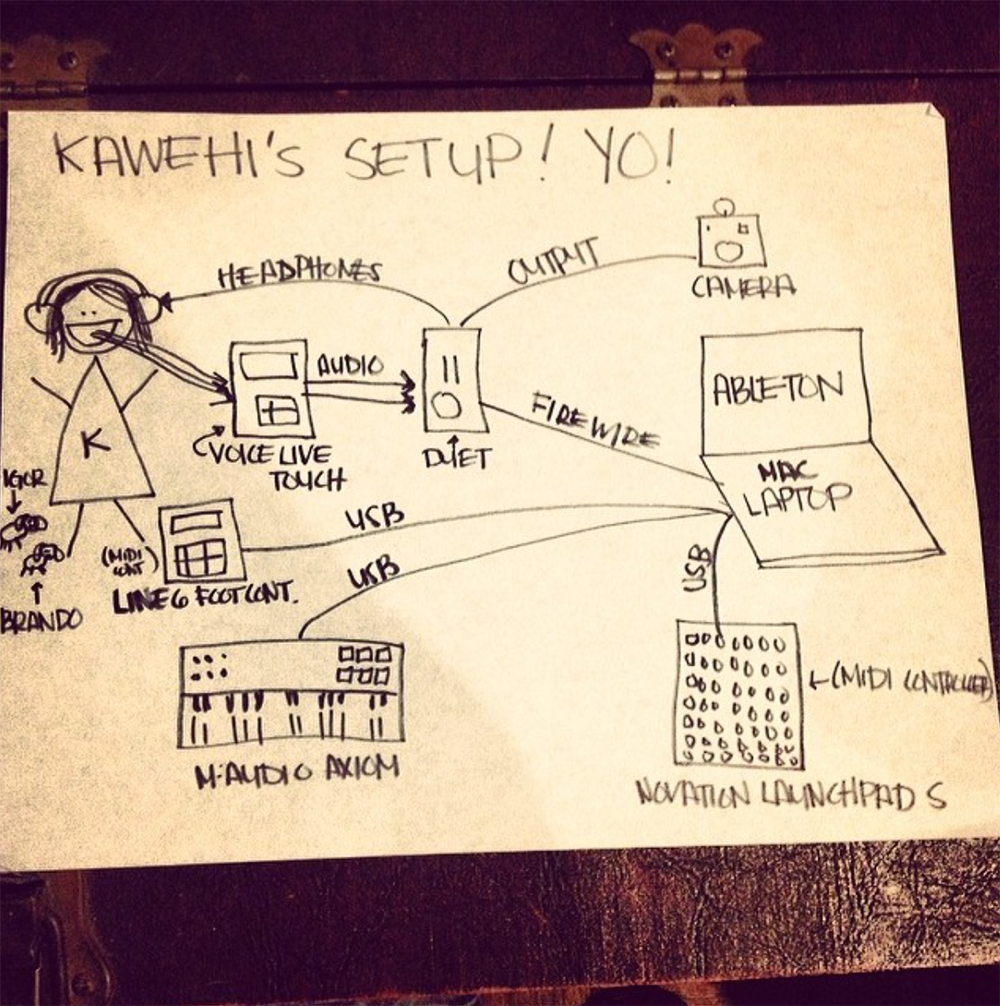 KAWEHI'S SETUP! YO!
HEADPHONES
OUTPUT
CAMERA
AUDIO
ABLETON
FIREWIRE
K
VOICE LIVE
TOUCH
DUET
MAC
LAPTOP
IGOR
USB
(MIDI
CONT)
LINE 6 FOOT CONT.
USB
USB
BRANDO
(MIDI CONTROLLER)
M-AUDIO AXIOM
NOVATION LAUNCHPAD S